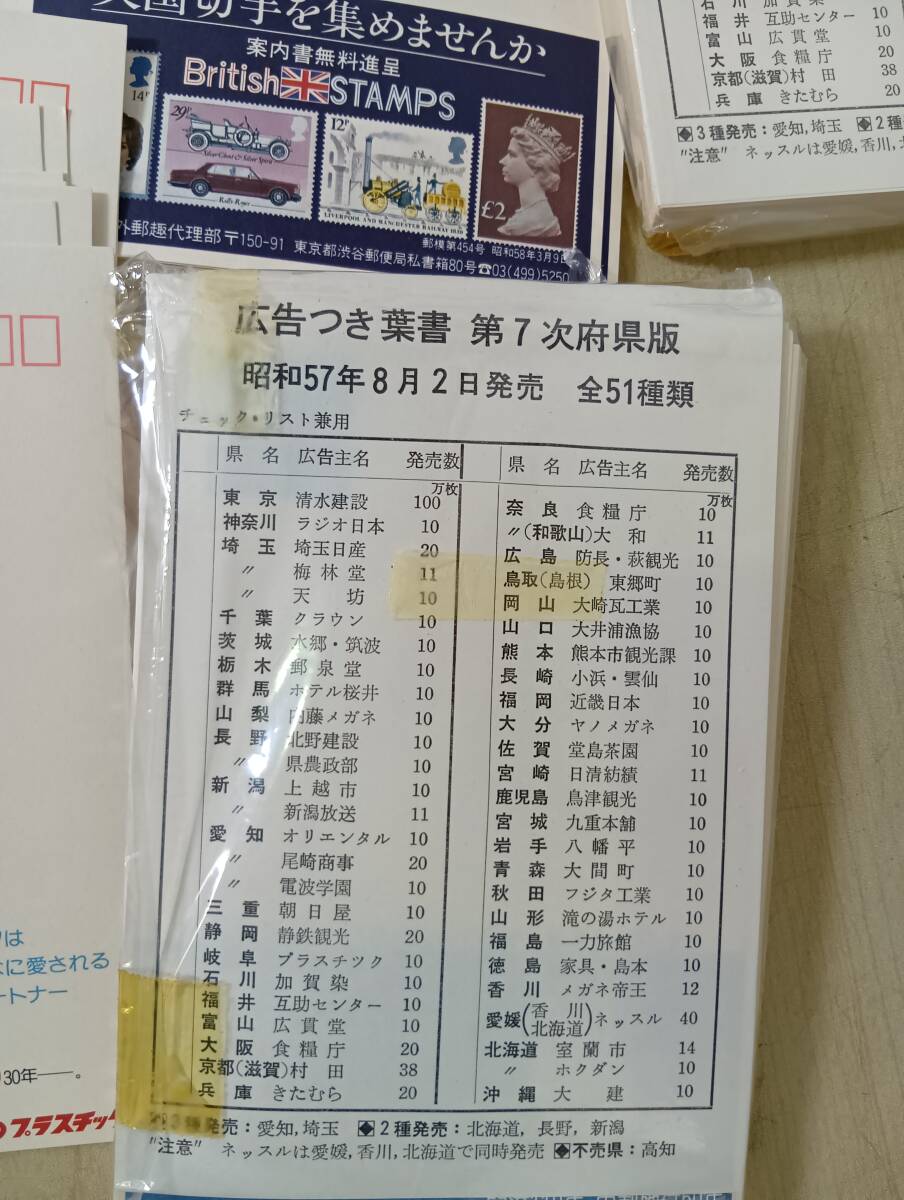 英国切手を集めませんか
案内書無料進呈
British STAMPS
14P
29P
Silver Ghost & Silver Spirit
Rolls-Royce
12P
LIVERPOOL AND MANCHESTER RAILWAY 1830
£2
外郵趣代理部〒150-91 東京都渋谷郵便局私書箱80号☎03(499)5250
郵模第454号 昭和58年3月9日
石川 加賀染
福井 互助センター 10
富山 広貫堂 10
大阪 食糧庁 20
京都(滋賀)村田 38
兵庫 きたむら 20
◆3種発売:愛知,埼玉 ◆2種
"注意" ネッスルは愛媛,香川,
広告つき葉書 第7次府県版
昭和57年8月2日発売 全51種類
チェック・リスト兼用
県名 広告主名 発売数
万枚
東京 清水建設 100
神奈川 ラジオ日本 10
埼玉 埼玉日産 20
〃 梅林堂 11
〃 天坊 10
千葉 クラウン 10
茨城 水郷・筑波 10
栃木 郵泉堂 10
群馬 ホテル桜井 10
山梨 内藤メガネ 10
長野 北野建設 10
〃 県農政部 10
新潟 上越市 10
〃 新潟放送 11
愛知 オリエンタル 10
〃 尾崎商事 20
〃 電波学園 10
三重 朝日屋 10
静岡 静鉄観光 20
岐阜 プラスチック 10
石川 加賀染 10
福井 互助センター 10
富山 広貫堂 10
大阪 食糧庁 20
京都(滋賀)村田 38
兵庫 きたむら 20
県名 広告主名 発売数
万枚
奈良 食糧庁 10
〃(和歌山)大和 11
広島 防長・萩観光 10
鳥取(島根) 東郷町 10
岡山 大崎瓦工業 10
山口 大井浦漁協 10
熊本 熊本市観光課 10
長崎 小浜・雲仙 10
福岡 近畿日本 10
大分 ヤノメガネ 10
佐賀 堂島茶園 10
宮崎 日清紡績 11
鹿児島 鳥津観光 10
宮城 九重本舗 10
岩手 八幡平 10
青森 大間町 10
秋田 フジタ工業 10
山形 滝の湯ホテル 10
福島 一力旅館 10
徳島 家具・島本 10
香川 メガネ帝王 12
愛媛(香川北海道)ネッスル 40
北海道 室蘭市 14
〃 ホクダン 10
沖縄 大建 10
3種発売:愛知,埼玉 ◆2種発売:北海道,長野,新潟
"注意" ネッスルは愛媛,香川,北海道で同時発売 ◆不売県:高知
は
に愛される
ートナー
30年――。
プラスチック